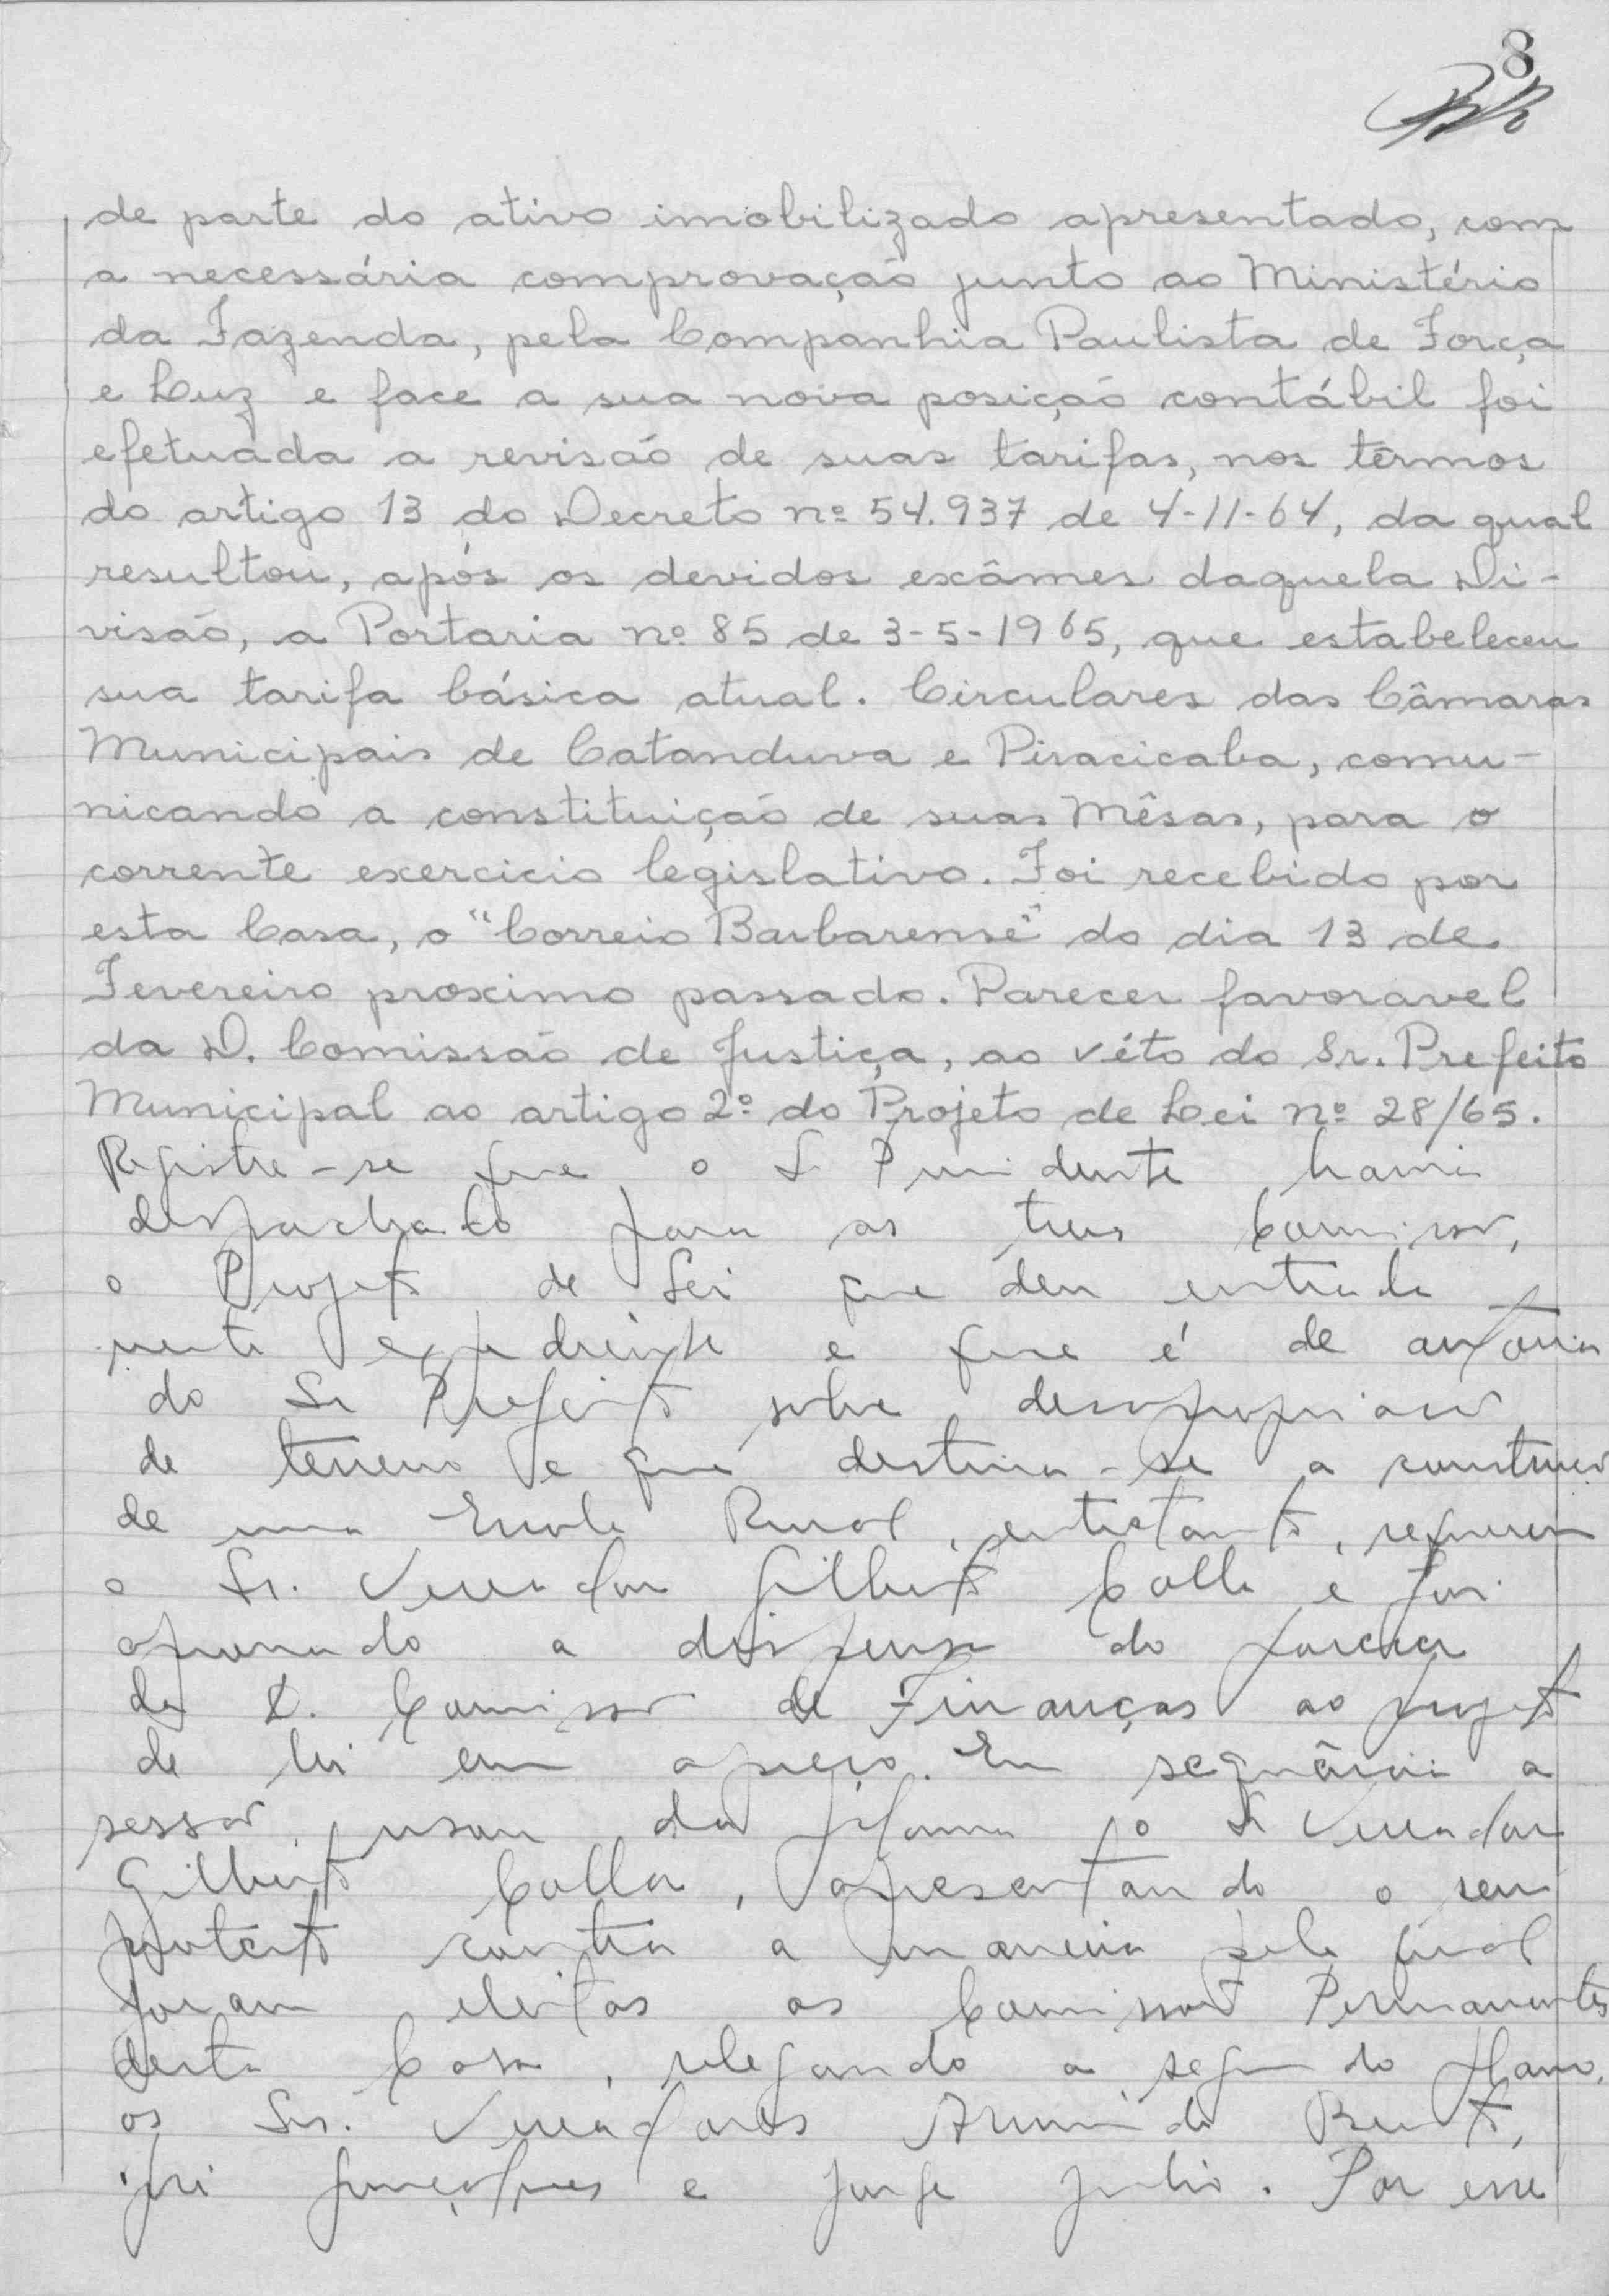 8
de parte do ativo imobilizado apresentado, com
a necessária comprovação junto ao Ministério
da Fazenda, pela Companhia Paulista de Força
e Luz e face a sua nova posição contábil foi
efetuada a revisão de suas tarifas, nos têrmos
do artigo 13 do Decreto nº 54.937 de 4-11-64, da qual
resultou, após os devidos exâmes daquela Di-
visão, a Portaria nº 85 de 3-5-1965, que estabeleceu
sua tarifa básica atual. Circulares das Câmaras
Municipais de Catanduva e Piracicaba, comu-
nicando a constituição de suas Mêsas, para o
corrente exercicio legislativo. Foi recebido por
esta Casa, o "Correio Barbarense" do dia 13 de
Fevereiro proximo passado. Parecer favoravel
da D. Comissão de Justiça, ao véto do Sr. Prefeito
Municipal ao artigo 2º do Projeto de Lei nº 28/65.
Registre-se que o Sr Presidente havia
despachado para as tres Comissões,
o Projeto de Lei que deu entrada
neste expediente e que é de autoria
do Sr Prefeito sobre desapropriação
de terreno e que destina-se a construção
de uma Escola Rural, entretanto, requereu
o Sr. Vereador Gilberto Colla e foi
aprovado a dispensa do parecer
da D. Comissão de Finanças ao projeto
de lei em apreço. Em sequência a
sessão, usou da palavra o Sr Vereador
Gilberto Colla, apresentando o seu
protesto contra a maneira pela qual
foram eleitas as Comissões Permanentes
desta Casa, relegando a segundo plano,
os Srs. Vereadores Armindo
José Gonçalves e Jorge Julio. Por esse